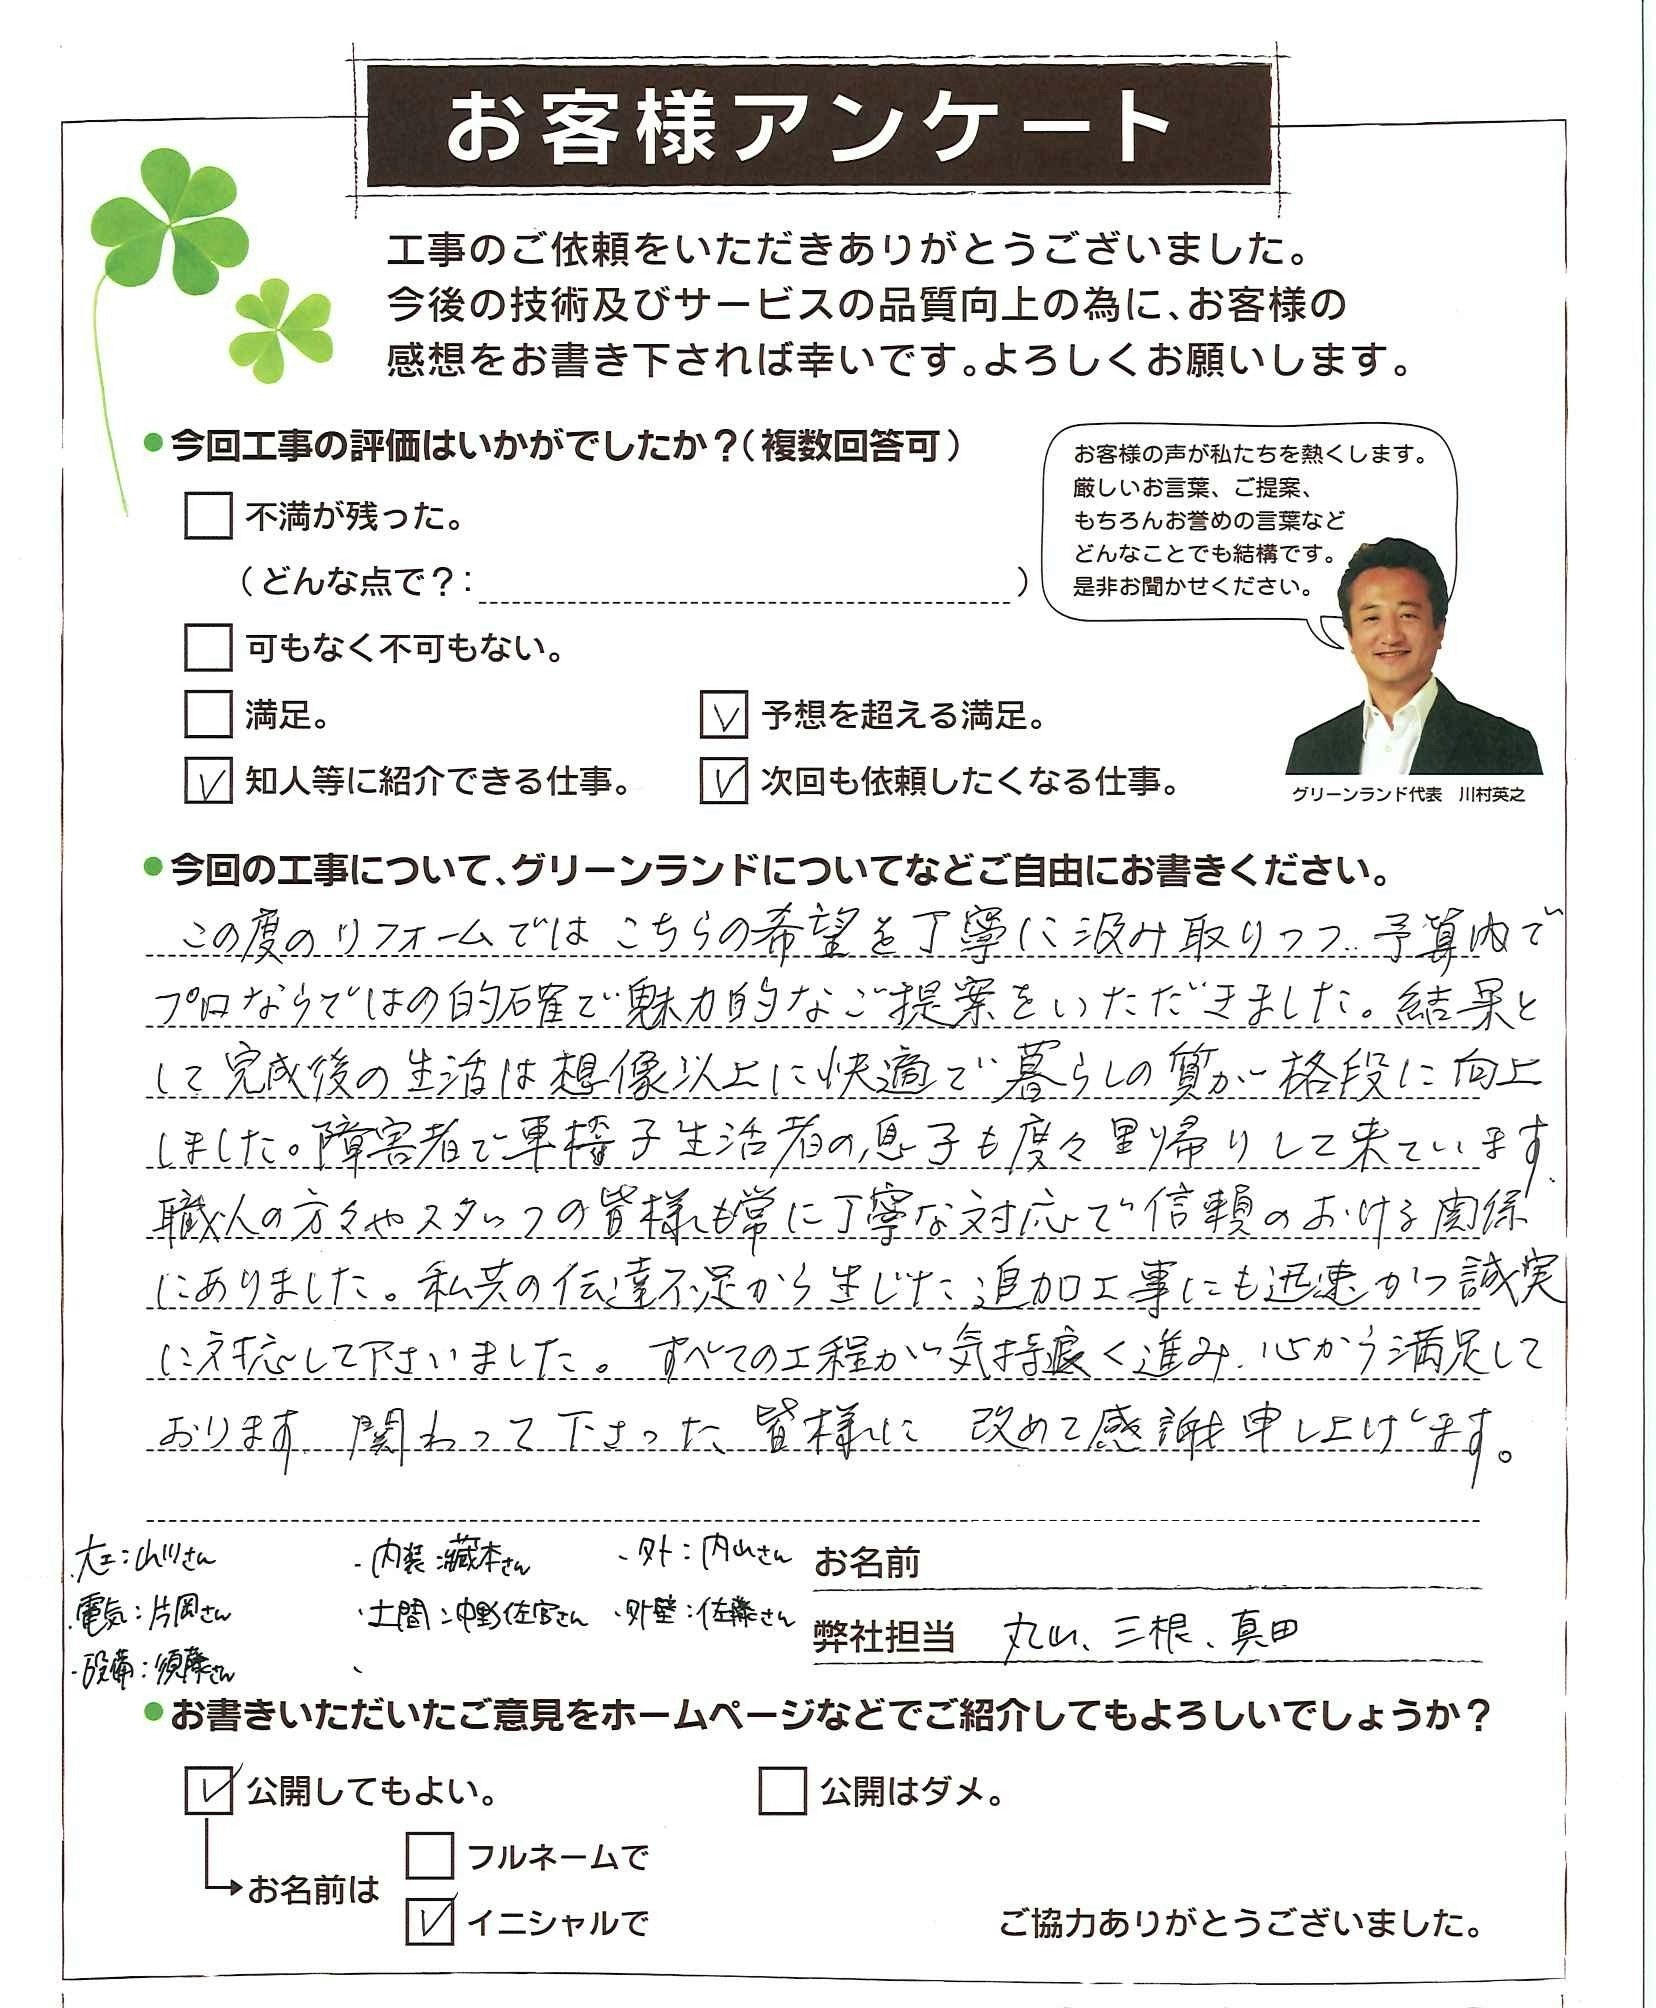 お客様アンケート
工事のご依頼をいただきありがとうございました。
今後の技術及びサービスの品質向上の為に、お客様の
感想をお書き下されば幸いです。よろしくお願いします。
●今回工事の評価はいかがでしたか？（複数回答可）
お客様の声が私たちを熱くします。
厳しいお言葉、ご提案、
もちろんお誉めの言葉など
どんなことでも結構です。
是非お聞かせください。
不満が残った。
（どんな点で？：　）
可もなく不可もない。
満足。
予想を超える満足。
知人等に紹介できる仕事。
次回も依頼したくなる仕事。
グリーンランド代表　川村英之
●今回の工事について、グリーンランドについてなどご自由にお書きください。
この度のリフォームでは こちらの希望を丁寧に汲み取りつつ、予算内で
プロならではの的確で魅力的なご提案をいただきました。結果と
して完成後の生活は想像以上に快適で暮らしの質が格段に向上
しました。障害者で車椅子生活者の息子も度々里帰りして来ています。
職人の方々やスタッフの皆様も常に丁寧な対応で信頼のおける関係
にありました。私共の伝達不足から生じた追加工事にも迅速かつ誠実
に対応して下さいました。すべての工程が気持良く進み、心から満足して
おります。関わって下さった皆様に 改めて感謝申し上げます。
・大工：山川さん
・内装：藏本さん
・外：内山さん
お名前
・電気：片岡さん
・土間：中野佐官さん
・外壁：佐藤さん
弊社担当 丸山、三根、真田
・設備：須藤さん
・
●お書きいただいたご意見をホームページなどでご紹介してもよろしいでしょうか？
公開してもよい。
公開はダメ。
お名前は
フルネームで
イニシャルで
ご協力ありがとうございました。